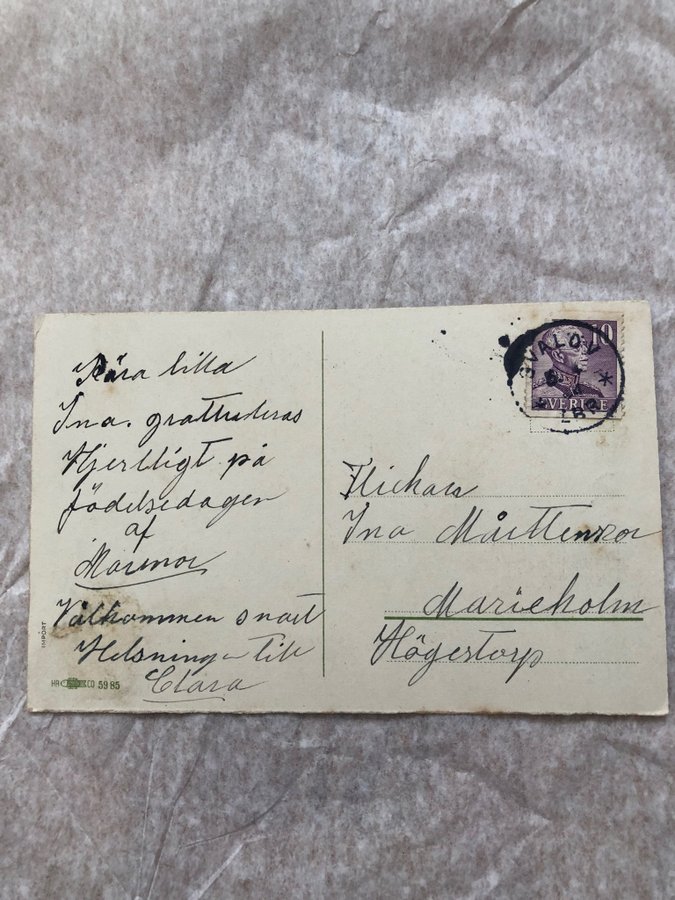 Kära lilla
Ina. grattuleras
Hjertligt på
födelsedagen
af
Mormor
Välkommen snart
Helsningen till
Clara
IMPORT
5985
10
SVALÖV
SVERIGE
Flickan
Ina Mårttenson
Marieholm
Högestorp